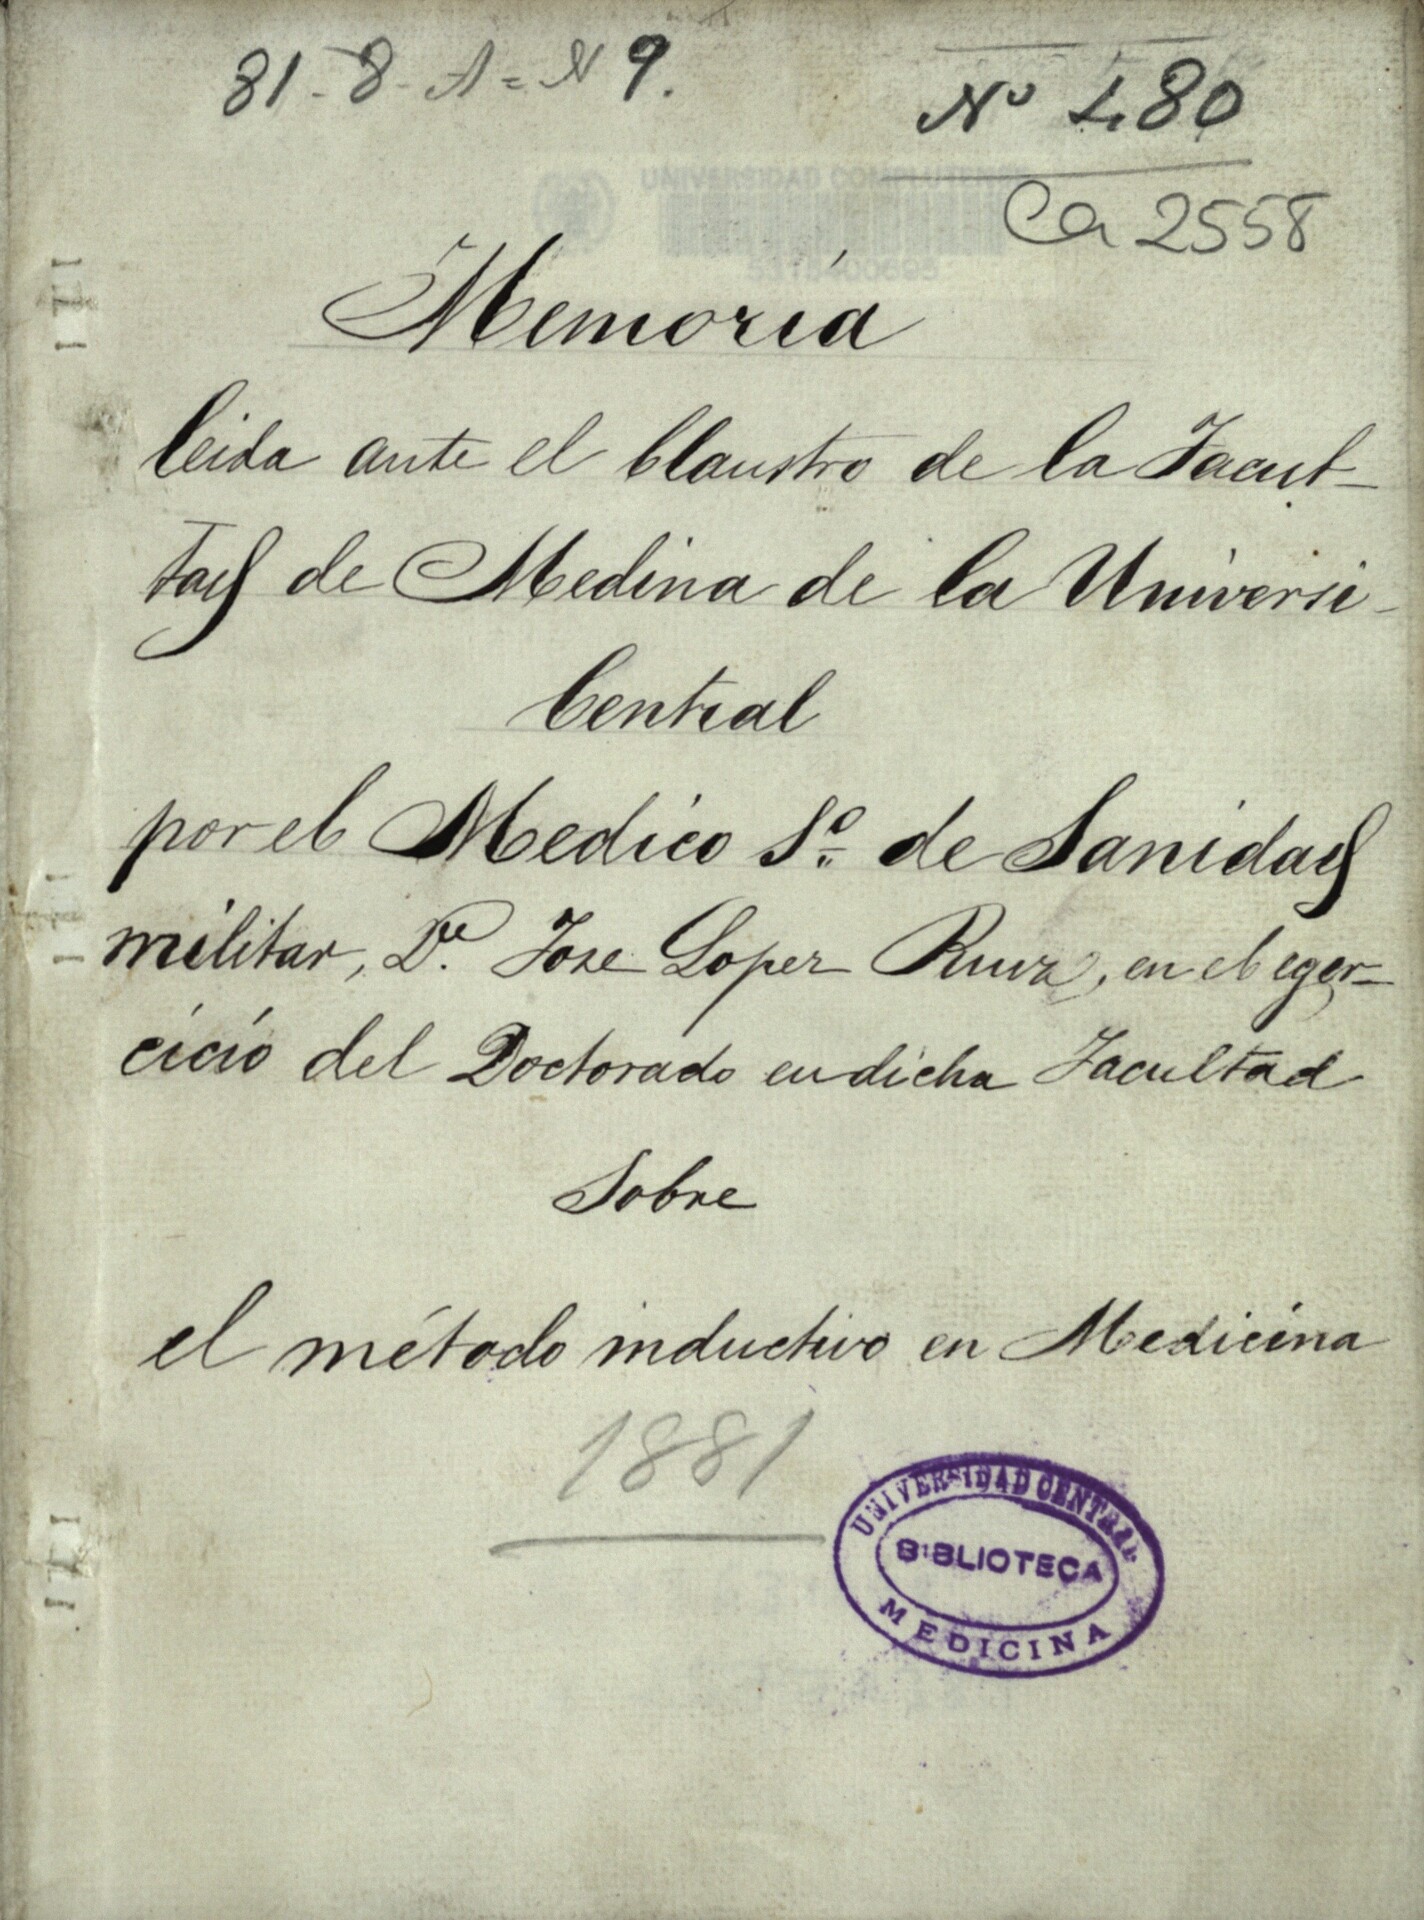 81-8-A=N 9.
Nº 480
Ca 2558
UNIVERSIDAD COMPLUTENSE
Memoria
leida ante el Claustro de la Facul-
tad de Medina de la Universi-
Central
por el Medico 1º de Sanidad
militar, Dn. Jose Lopez Ruiz, en el eger-
cicio del Doctorado en dicha Facultad
Sobre
el método inductivo en Medicina
1881
UNIVERSIDAD CENTRAL
BIBLIOTECA
MEDICINA